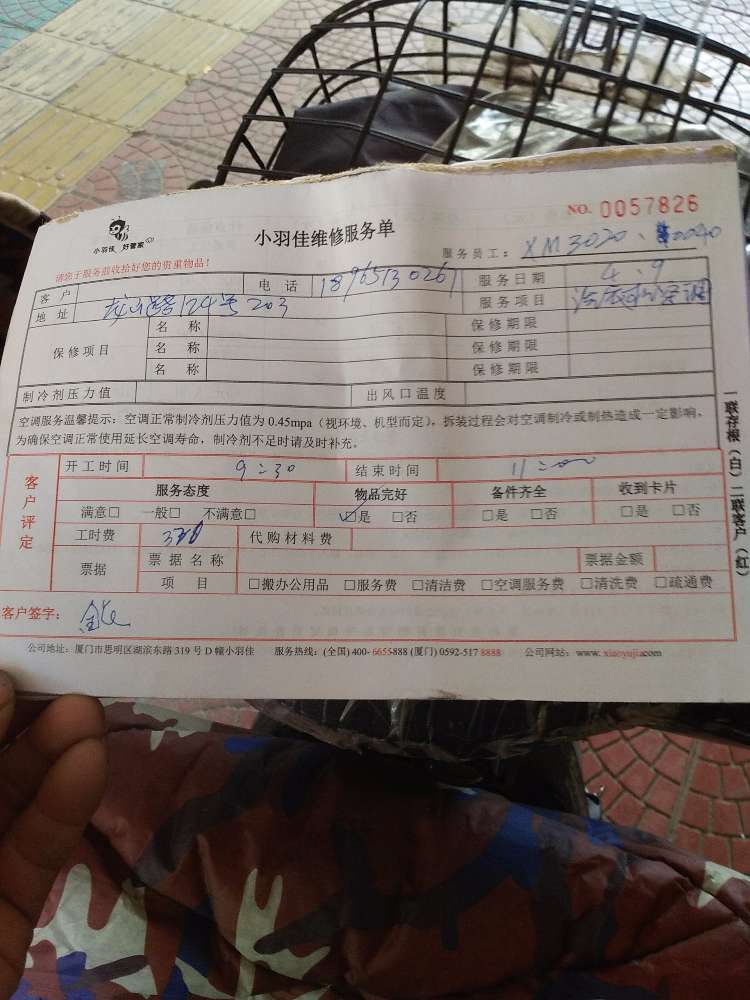 NO. 0057826
小羽佳 好管家
小羽佳维修服务单
请您于服务前收拾好您的贵重物品！
服务员工：XM3020、0040
客户 电话 18965130261 服务日期 4.9
地址 124号203 服务项目 空调
保修项目 名称 保修期限
名称 保修期限
名称 保修期限
制冷剂压力值 出风口温度
空调服务温馨提示：空调正常制冷剂压力值为 0.45mpa（视环境、机型而定），拆装过程会对空调制冷或制热造成一定影响，
为确保空调正常使用延长空调寿命，制冷剂不足时请及时补充。
客户评定
开工时间 9:30 结束时间 11:00
服务态度 物品完好 备件齐全 收到卡片
满意□ 一般□ 不满意□ ☑是 □否 □是 □否 □是 □否
工时费 代购材料费
票据 票据名称 票据金额
项目 □搬办公用品 □服务费 □清洁费 □空调服务费 □清洗费 □疏通费
客户签字：
一联存根（白）二联客户（红）
公司地址：厦门市思明区湖滨东路 319 号 D 幢小羽佳 服务热线：(全国) 400-6655-888 (厦门) 0592-517 8888 公司网站：www.xiaoyujia.com